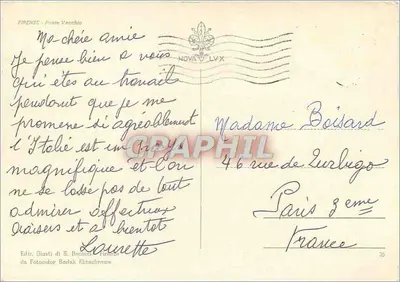 FIRENZE - Ponte Vecchio
NOVA LVX
Ma chère amie
Je pense bien a vous
qui êtes au travail
pendant que je me
promene si agréablement
l'Italie est un pays
magnifique et l'on
ne se lasse pas de tout
admirer affectueux
baisers et a bientot
Laurette
Madame Boisard
46 rue de Turbigo
Paris 3eme
France
CPAPHIL
Ediz. Giusti di S.
da Fotocolor Kodak Ektachrome